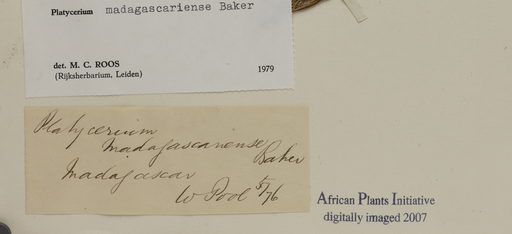 Platycerium madagascariense Baker
det. M. C. ROOS
(Rijksherbarium, Leiden) 1979
Platycerium
madagascariense
Baker
Madagascar
W Pool 5/76
African Plants Initiative
digitally imaged 2007